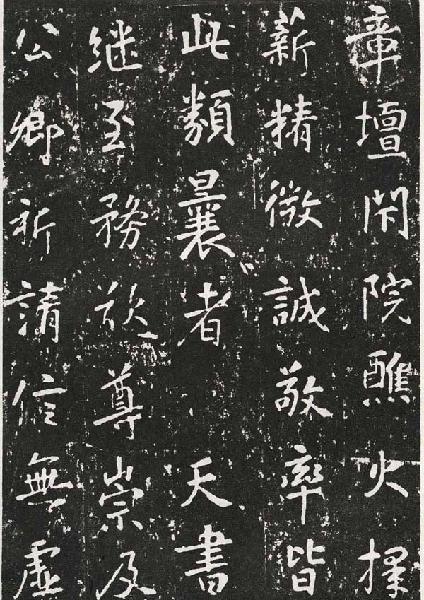 章壇院醮火
薪精微誠敬率皆
此類曩者天書
継至務欲尊崇及
公卿祈請信無虛